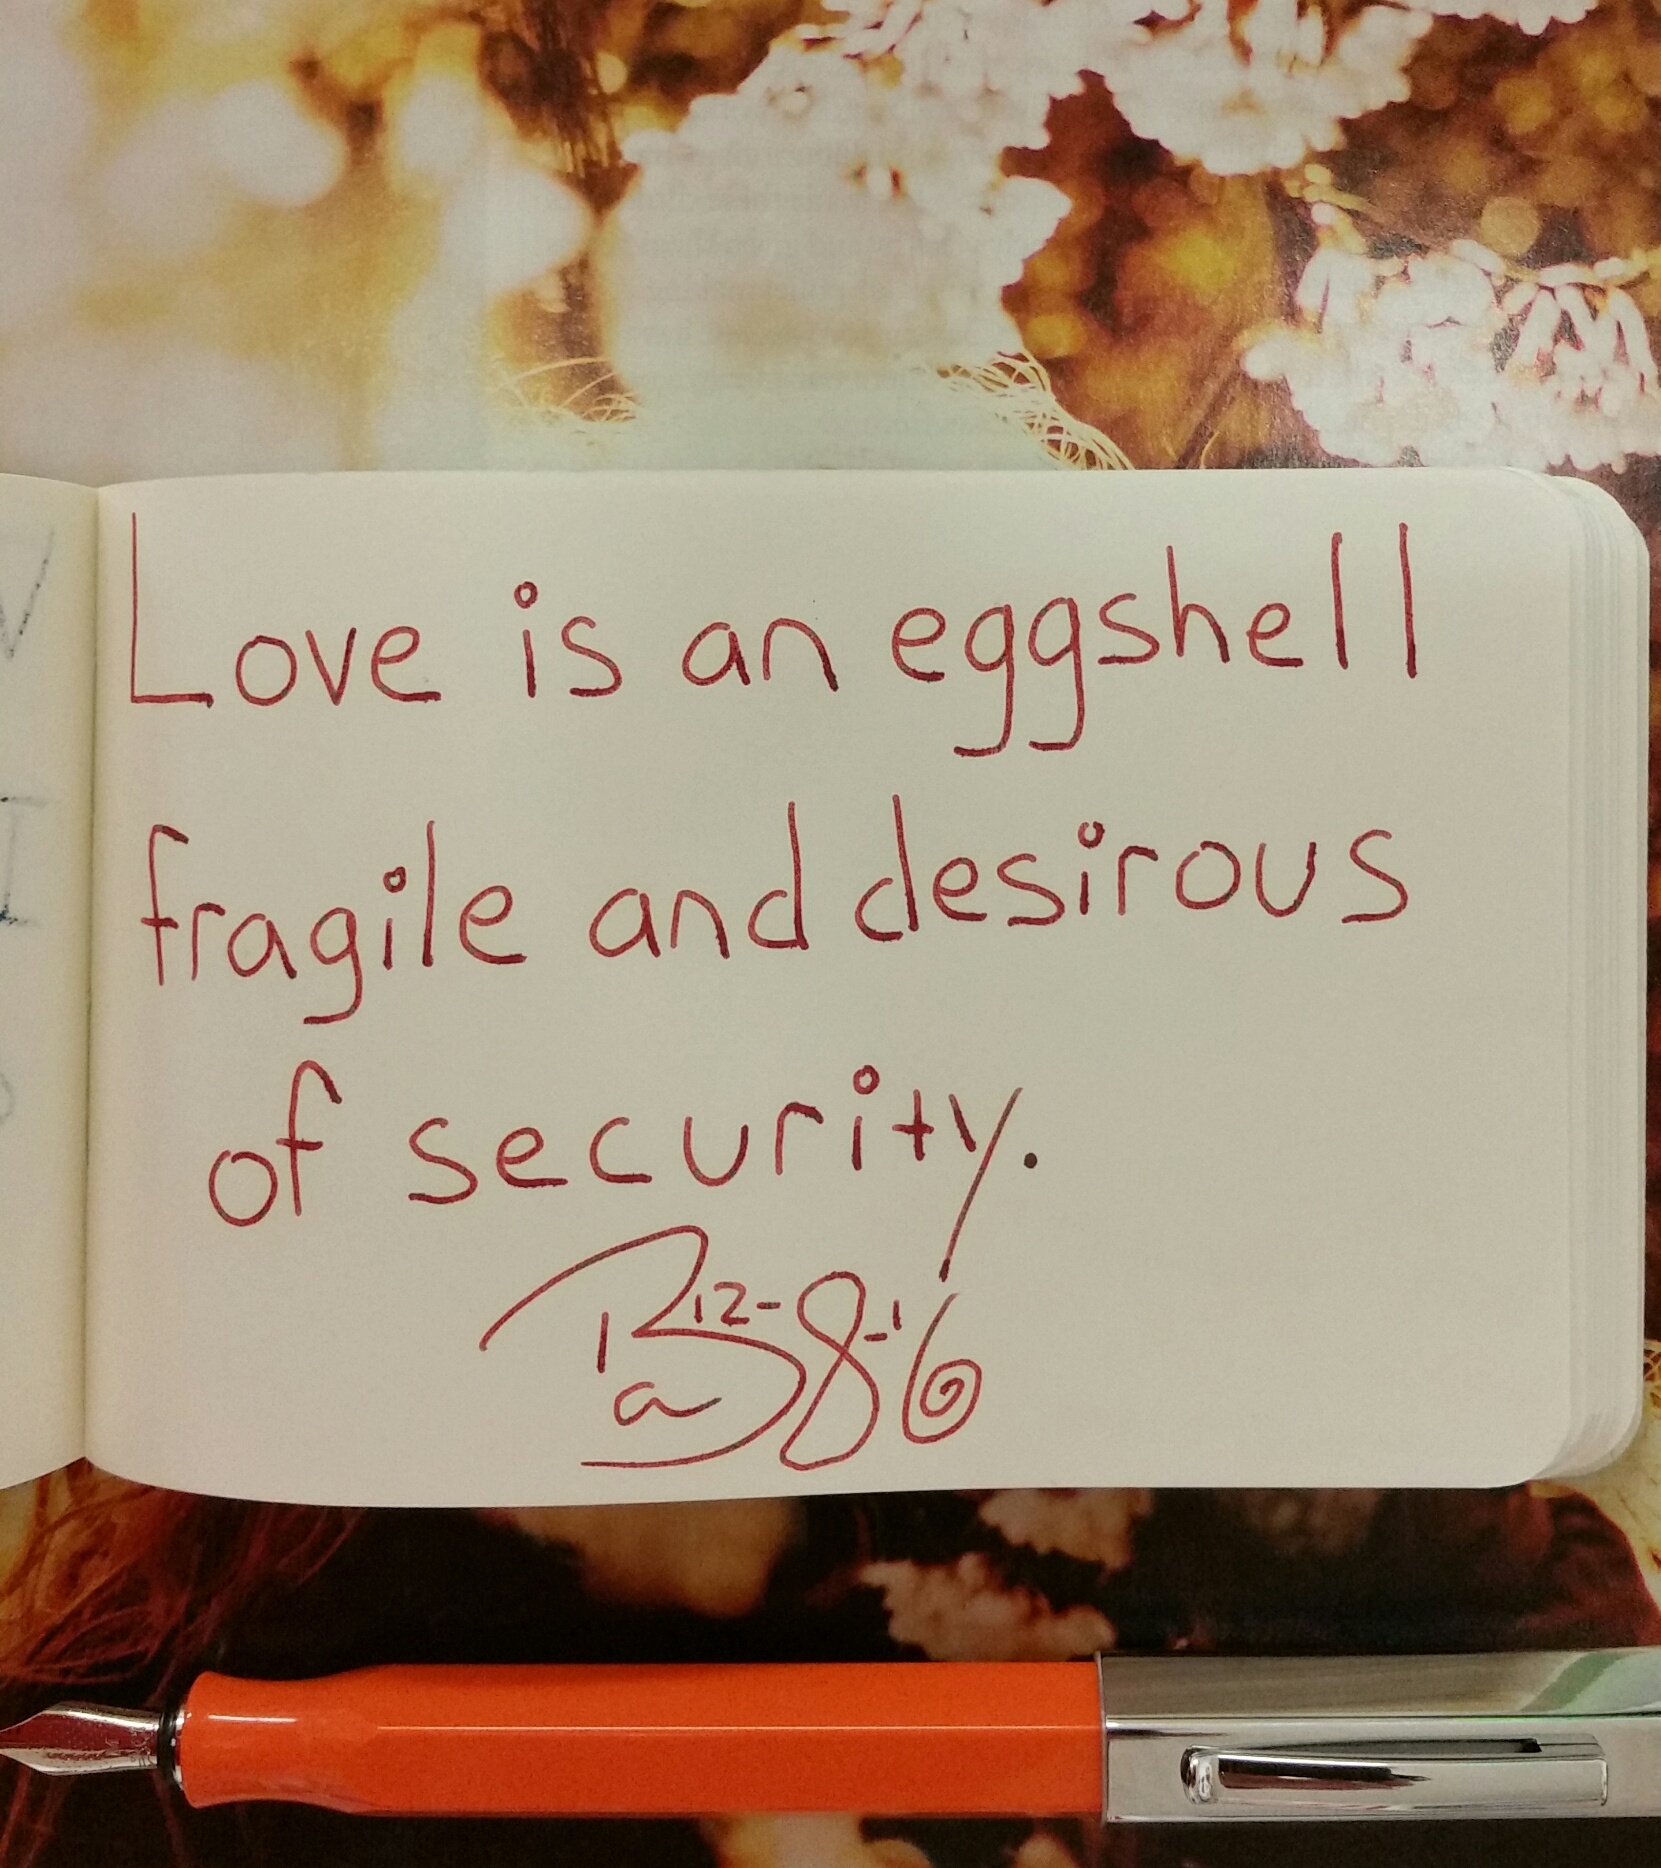 Love is an eggshell
fragile and desirous
of security.
12-8-16